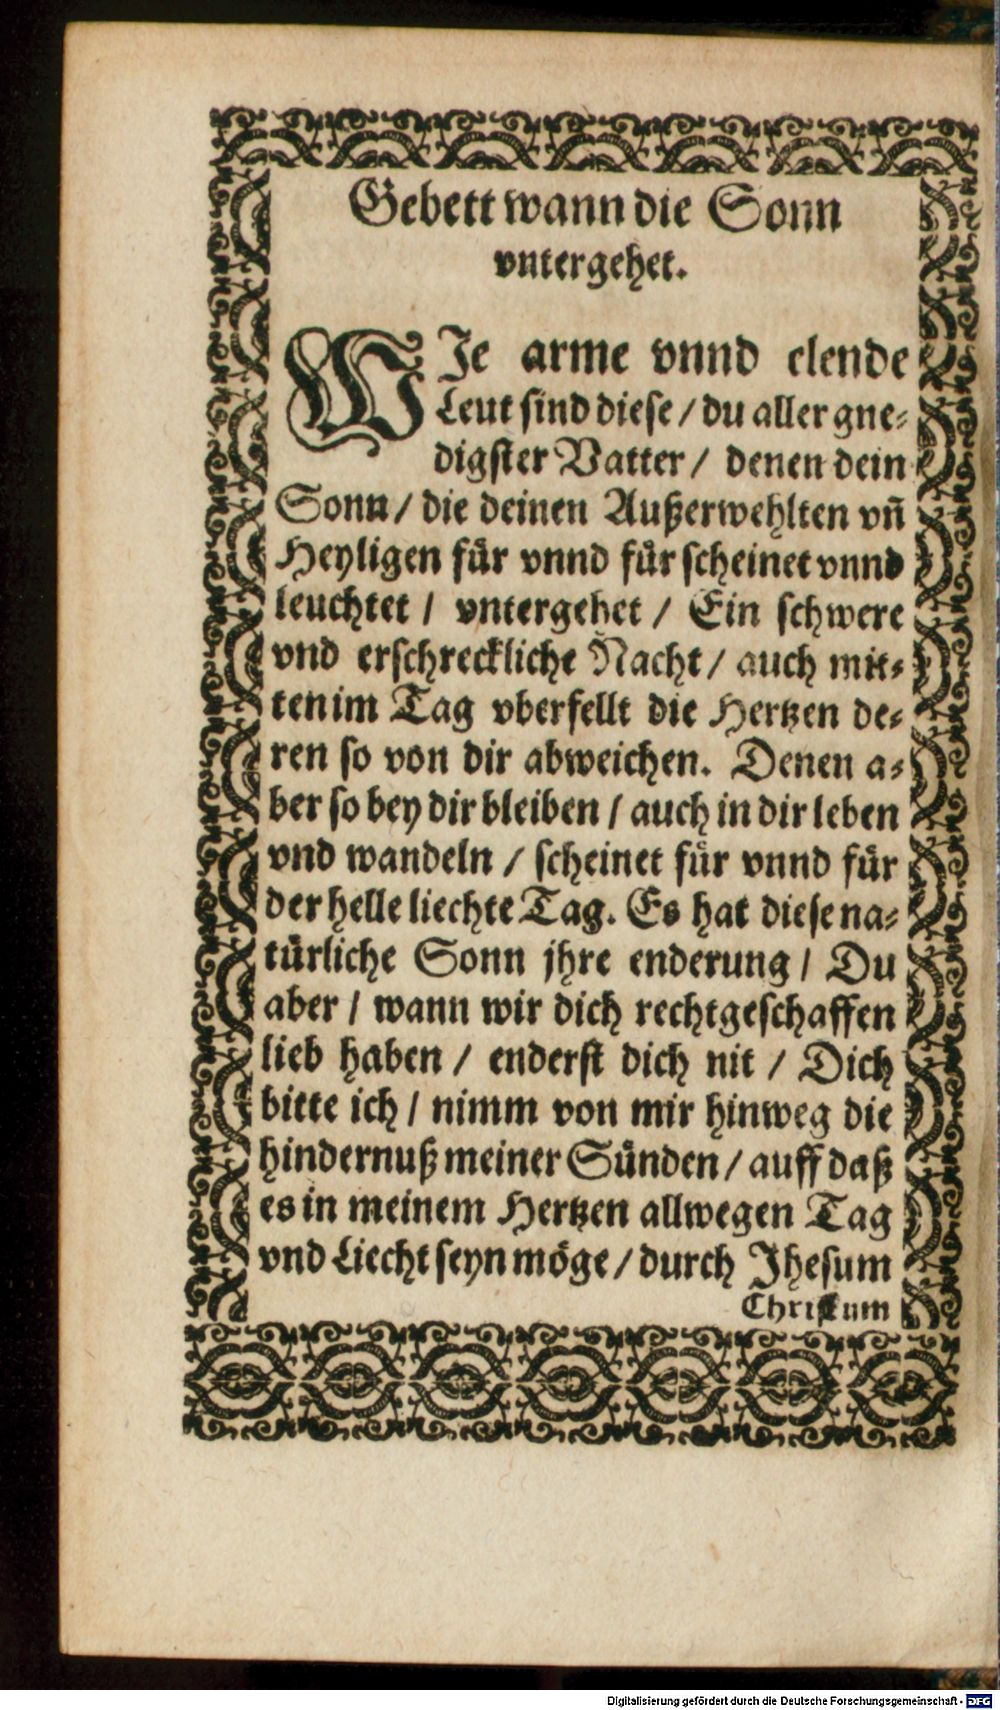 Gebett wann die Sonn
vntergehet.
WJe arme vnnd elende
Leut sind diese / du aller gne-
digster Vatter / denen dein
Sonn / die deinen Außerwehlten vñ
Heyligen für vnnd für scheinet vnnd
leuchtet / vntergehet / Ein schwere
vnd erschreckliche Nacht / auch mit-
ten im Tag vberfellt die Hertzen de-
ren so von dir abweichen. Denen a-
ber so bey dir bleiben / auch in dir leben
vnd wandeln / scheinet für vnnd für
der helle liechte Tag. Es hat diese na-
türliche Sonn jhre enderung / Du
aber / wann wir dich rechtgeschaffen
lieb haben / enderst dich nit / Dich
bitte ich / nimm von mir hinweg die
hindernuß meiner Sünden / auff daß
es in meinem Hertzen allwegen Tag
vnd Liecht seyn möge / durch Jhesum
Christum
Digitalisierung gefördert durch die Deutsche Forschungsgemeinschaft - DFG